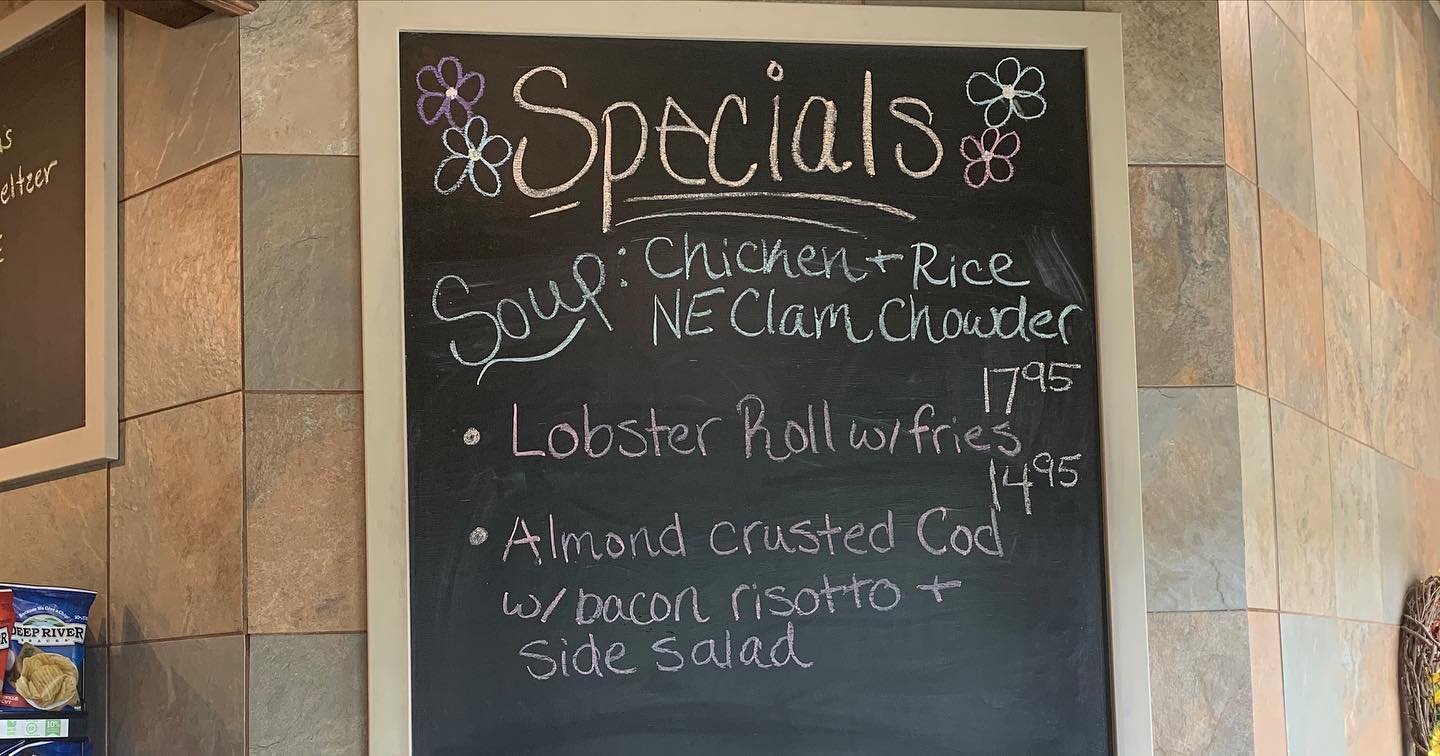 eltzer
Specials
Soup: Chicken + Rice
NE Clam Chowder
17 95
• Lobster Roll w/ fries
14 95
• Almond crusted Cod
w/ bacon risotto +
side salad
DEEP RIVER
SNACKS